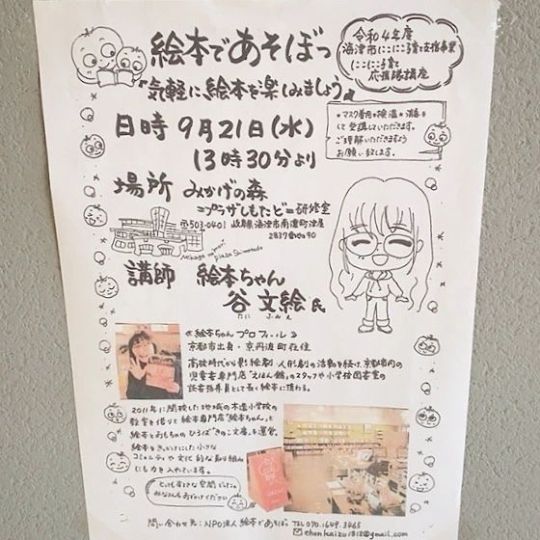 絵本であそぼっ
令和4年度
海津市にこにこ子育て支援事業
にこにこ子育て
応援隊講座
『気軽に絵本を楽しみましょう』
日時 9月21日(水)
13時30分より
*マスク着用*検温*消毒を
して受講していただきます。
ご理解いただきますよう
お願い致します。
場所 みかげの森
=プラザしもたど=研修室
〒503-0401 岐阜県海津市南濃町津屋
2837番地90
Mikage no mori
plaza Shimotado
講師 絵本ちゃん
谷 文絵 氏
たに ふみえ
≪絵本ちゃん プロフィール≫
京都市出身・京丹波町在住
高校時代から影絵劇 人形劇の活動を続け、京都市内の
児童書専門店"えほん館"のスタッフや小学校図書室の
読書指導員として長く絵本に携わる。
2011年に閉校した地域の木造小学校の
教室を借りて絵本専門店"絵本ちゃん"と
絵本とおもちゃのひろば"きのこ文庫"を運営。
絵本をきっかけにした小さな
コミュニティや文化的な取り組み
にも力を入れています。
とっても素敵な空間でした。
みなさんもお出かけください
問い合わせ先:NPO法人 絵本であそぼっ TEL 090.1649.3965